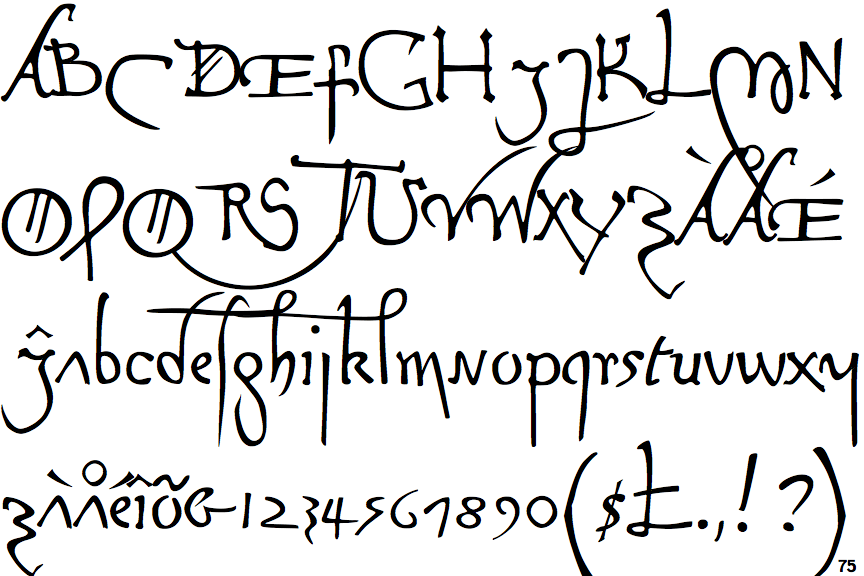 ABCDEFGHIJKLMN
OPQRSTUVWXYZÀÅÉ
ĵabcdefghijklmnopqrstuvwxy
zàåéîõ&1234567890($£.,!?)
75